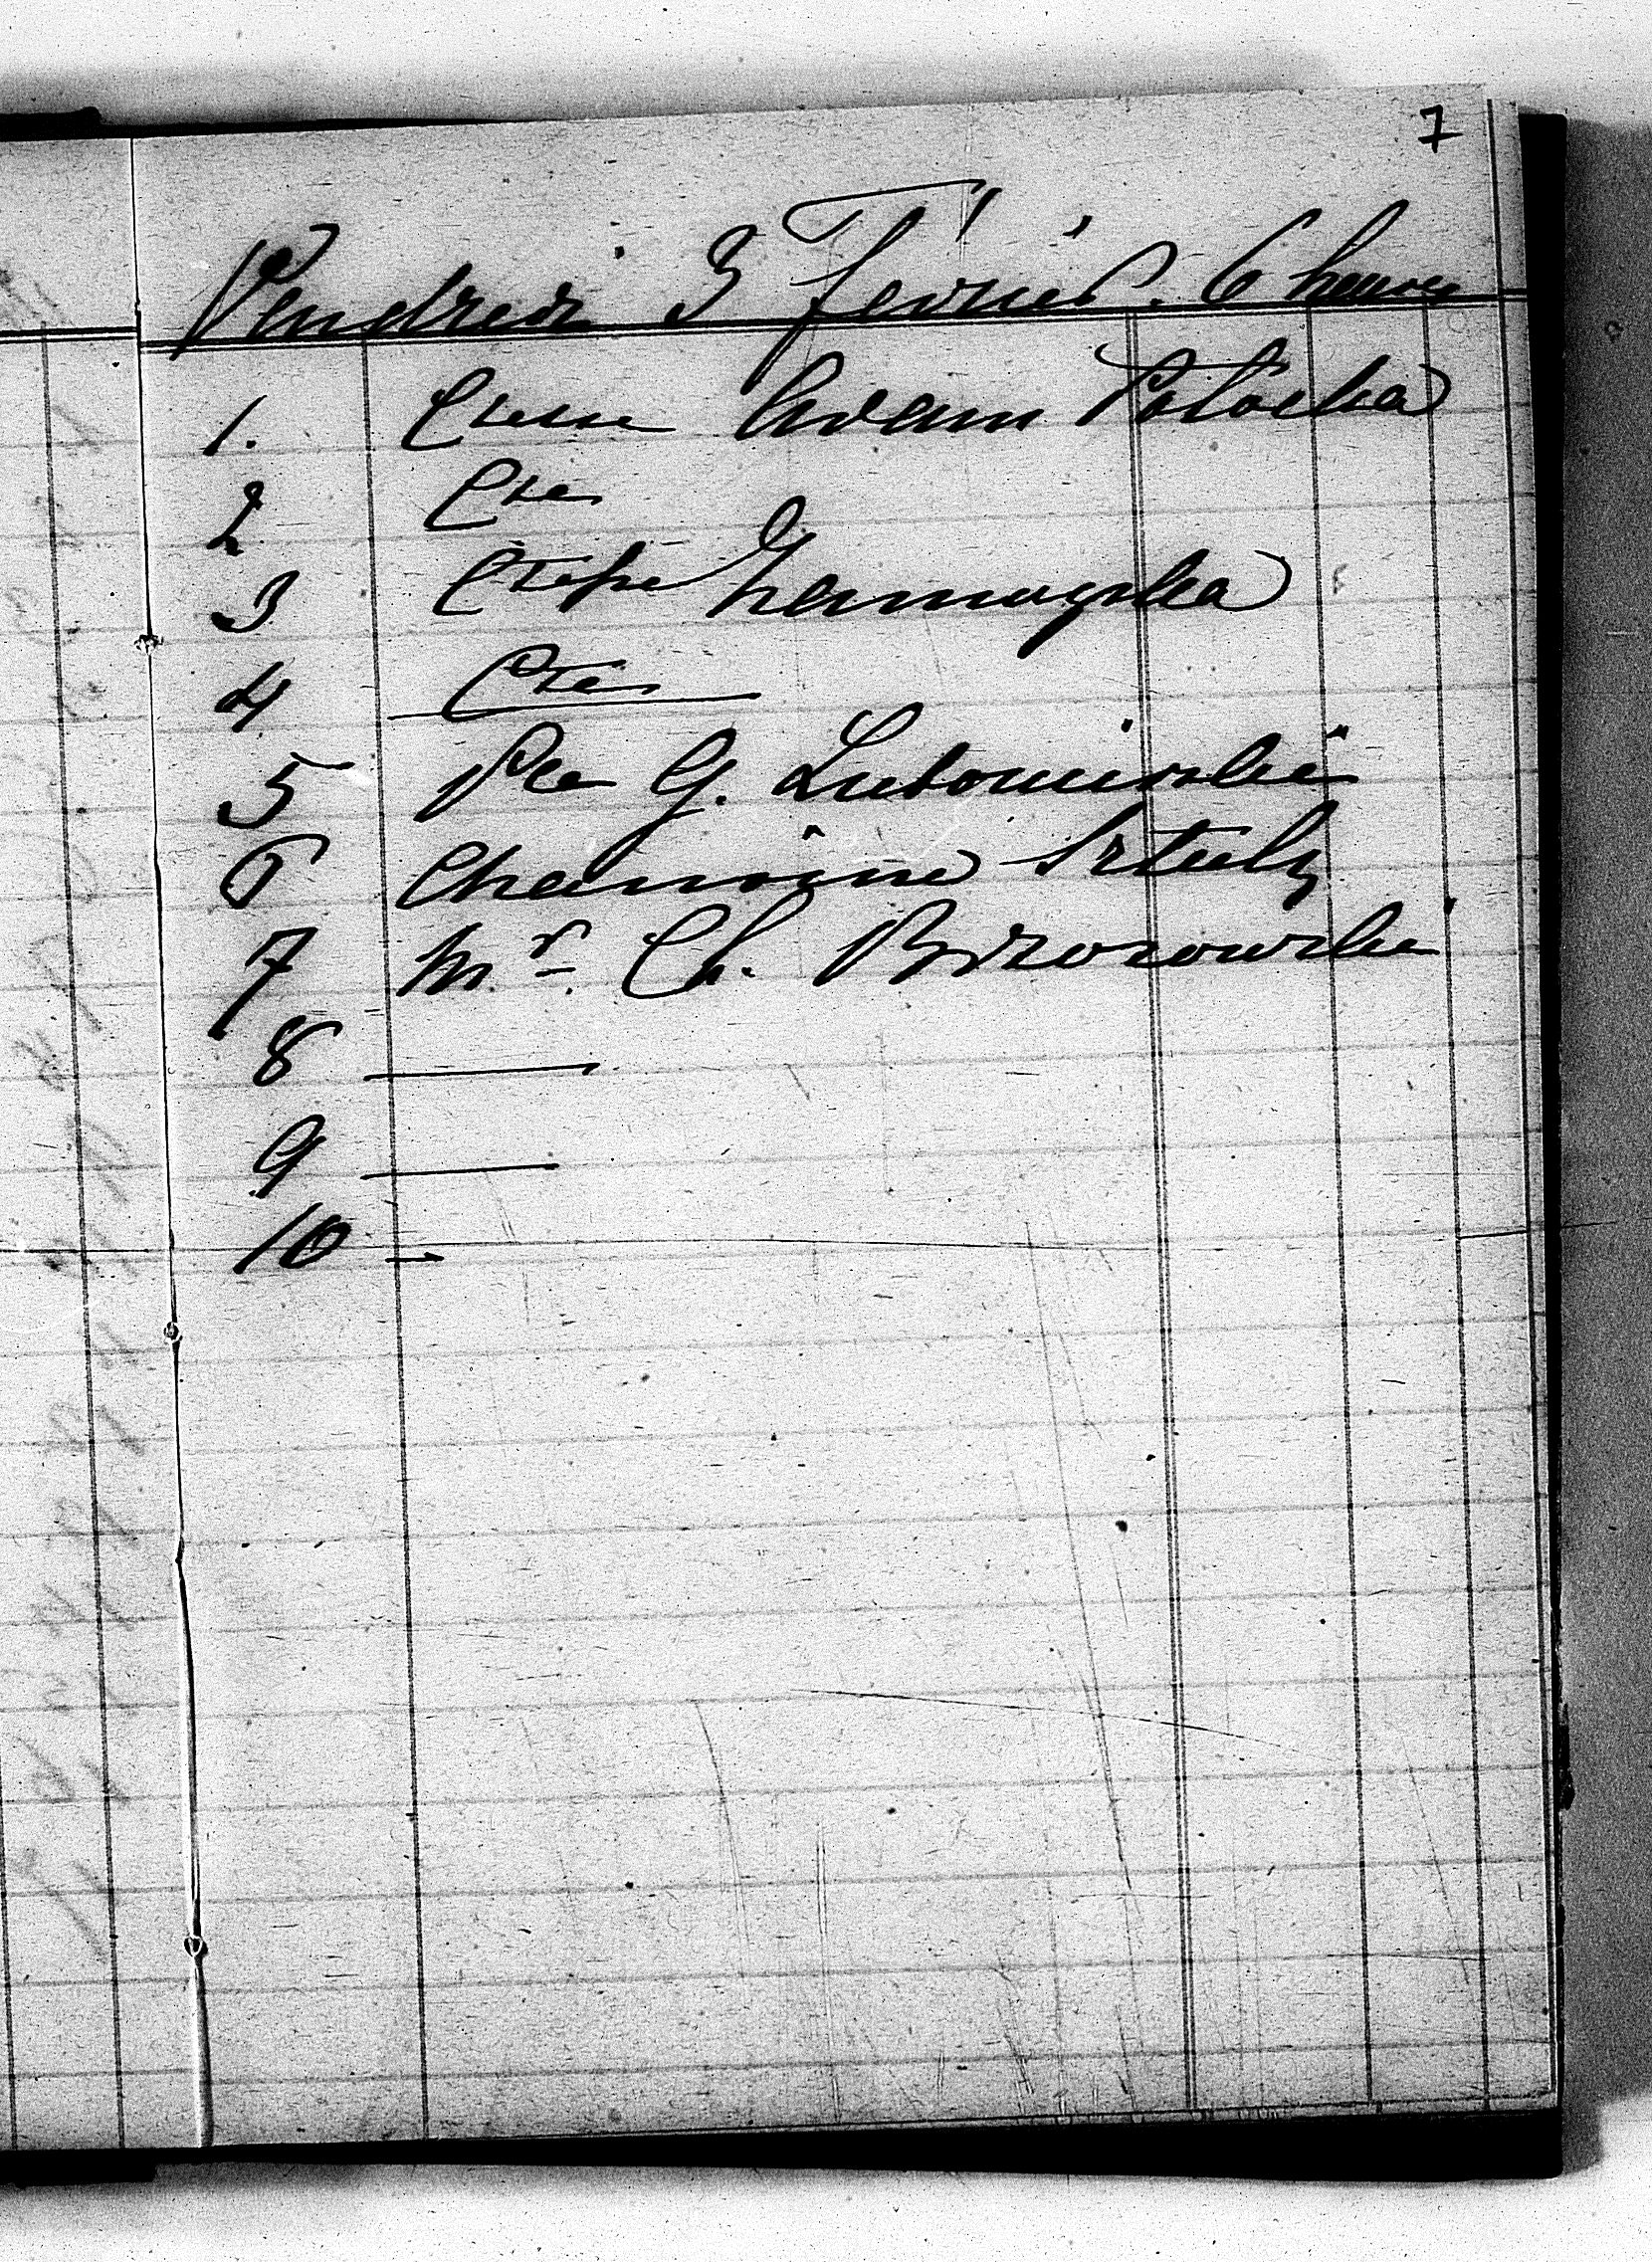 7
Vendredi 3 Février. 6 heures
1. Ctesse Adam Potocka
2 Cte
3 Ctesse Zamoyska
4 Cte
5 Pce G. Lubomirski
6 Chanoine Sztulz
7 Mr. Ch. Brzozowski
8 —
9 —
10 —